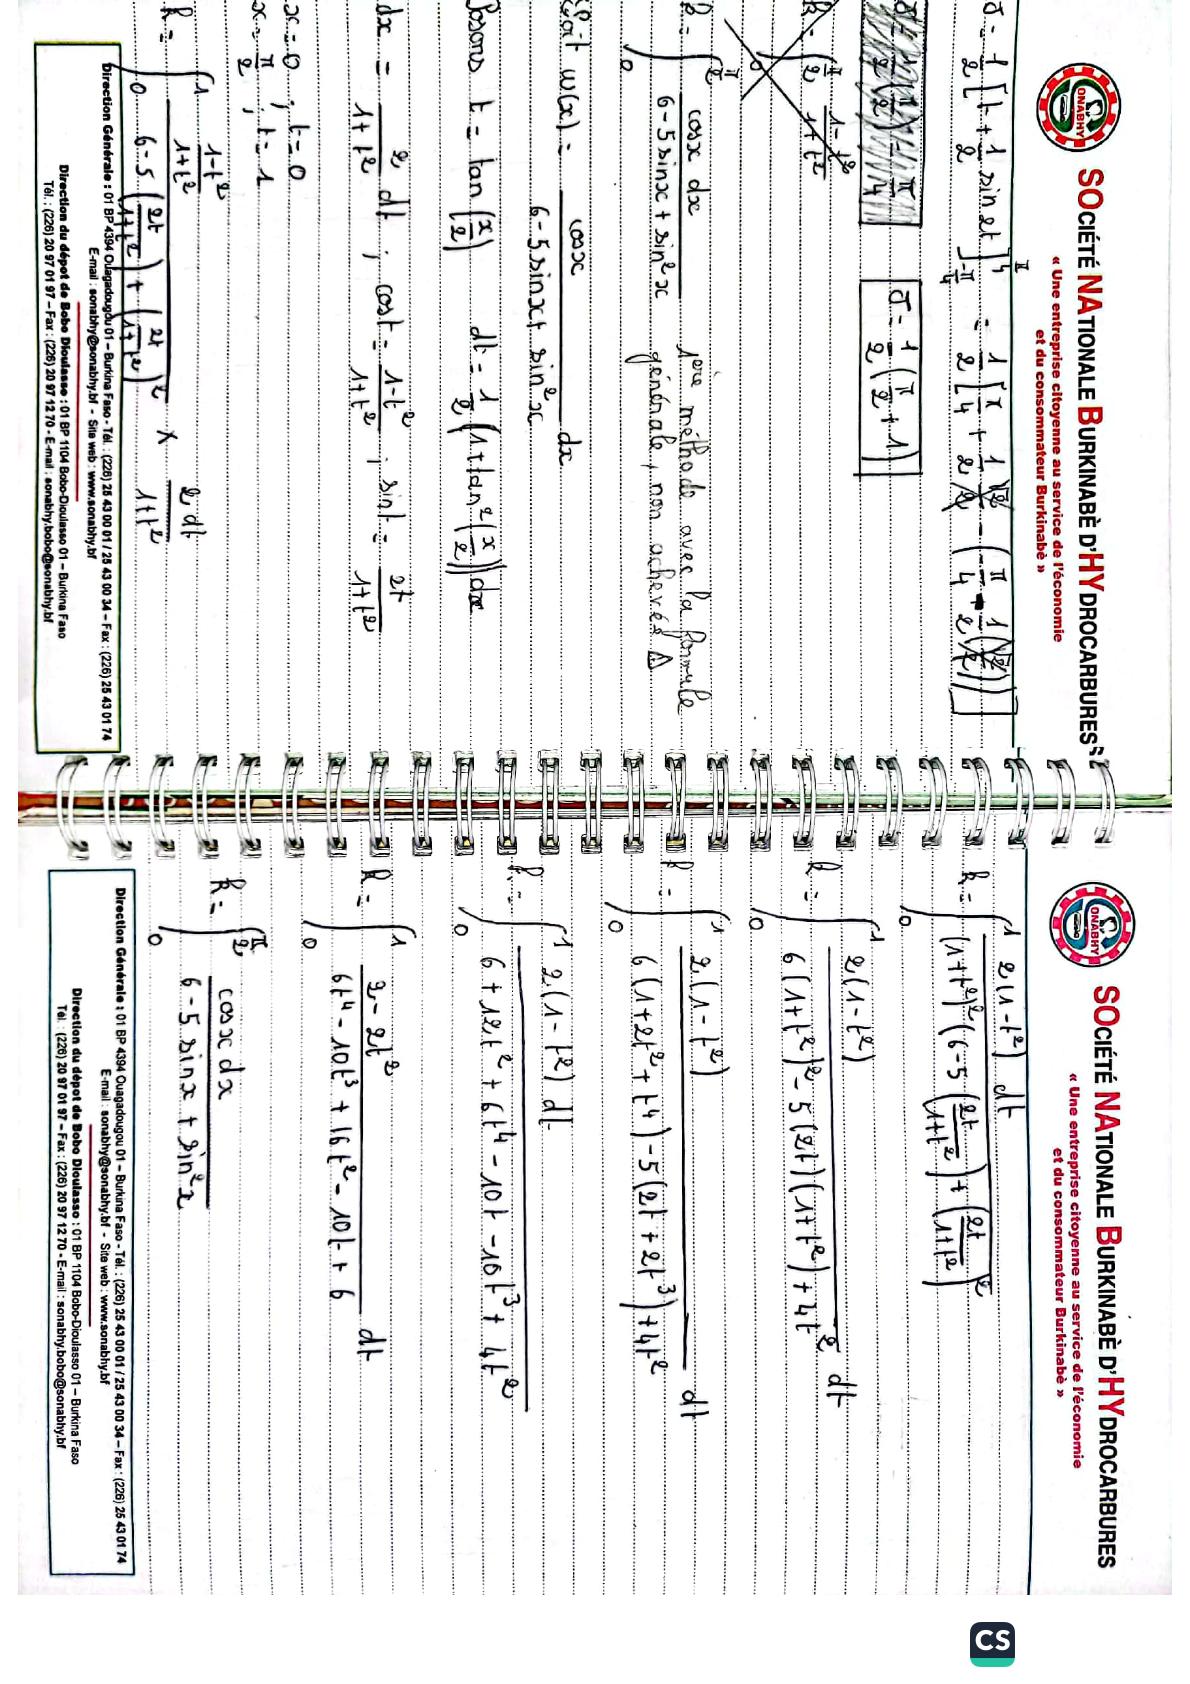 SOCIÉTÉ NATIONALE BURKINABÈ D'HYDROCARBURES
« Une entreprise citoyenne au service de l'économie
et du consommateur Burkinabè »
SONABHY
J = 1/2 [t + 1/2 sin 2t]_{-π/4}^{π/4} = 1/2 [π/4 + 1/2
J = 1/2 (π/2 + 1)
k = ∫_0^{π/2} (1-t²)/(1+t²)
k = ∫_0^{π/2} cosx dx / (6 - 5 sinx + sin²x) 1ère méthode avec la formule
générale, non achevée ⚠
Soit w(x) = cosx / (6 - 5 sinx + sin²x) dx
Posons t = tan(x/2) dt = 1/2 (1 + tan²(x/2)) dx
dx = 2/(1+t²) dt ; cost = (1-t²)/(1+t²) ; sint = 2t/(1+t²)
x = 0 ; t = 0
x = π/2 ; t = 1
k = ∫_0^1 ((1-t²)/(1+t²)) / (6 - 5(2t/(1+t²)) + (2t/(1+t²))²) × 2dt/(1+t²)
Direction Générale : 01 BP 4394 Ouagadougou 01 – Burkina Faso - Tél. : (226) 25 43 00 01 / 25 43 00 34 – Fax : (226) 25 43 01 74
E-mail : sonabhy@sonabhy.bf - Site web : www.sonabhy.bf
Direction du dépot de Bobo Dioulasso : 01 BP 1104 Bobo-Dioulasso 01 – Burkina Faso
Tél. : (226) 20 97 01 97 – Fax : (226) 20 97 12 70 - E-mail : sonabhy.bobo@sonabhy.bf
SOCIÉTÉ NATIONALE BURKINABÈ D'HYDROCARBURES
« Une entreprise citoyenne au service de l'économie
et du consommateur Burkinabè »
SONABHY
k = ∫_0^1 2(1-t²) dt / ((1+t²)² (6 - 5(2t/(1+t²)) + (2t/(1+t²))²)
k = ∫_0^1 2(1-t²) / (6(1+t²)² - 5(2t)(1+t²) + 4t²) dt
k = ∫_0^1 2(1-t²) / (6(1+2t²+t⁴) - 5(2t+2t³) + 4t²) dt
k = ∫_0^1 2(1-t²) dt / (6 + 12t² + 6t⁴ - 10t - 10t³ + 4t²)
k = ∫_0^1 (2 - 2t²) / (6t⁴ - 10t³ + 16t² - 10t + 6) dt
k = ∫_0^{π/2} cosx dx / (6 - 5 sinx + sin²x)
Direction Générale : 01 BP 4394 Ouagadougou 01 – Burkina Faso - Tél. : (226) 25 43 00 01 / 25 43 00 34 – Fax : (226) 25 43 01 74
E-mail : sonabhy@sonabhy.bf - Site web : www.sonabhy.bf
Direction du dépot de Bobo Dioulasso : 01 BP 1104 Bobo-Dioulasso 01 – Burkina Faso
Tél. : (226) 20 97 01 97 – Fax : (226) 20 97 12 70 - E-mail : sonabhy.bobo@sonabhy.bf
CS